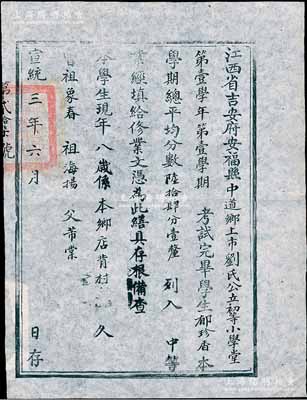 江西省吉安府安福縣中道鄉上市劉氏公立初等小學堂
第壹學年第壹學期　考試完畢學生郁珍香本
學期總平均分數陸拾肆分壹釐　列入　中等
業經填給修業文憑為此繕具存根備查
今學生現年八歲係本鄉店背村　久
曾祖象春　祖海揚　父芾棠
宣統三年六月　日存
第貳拾　號